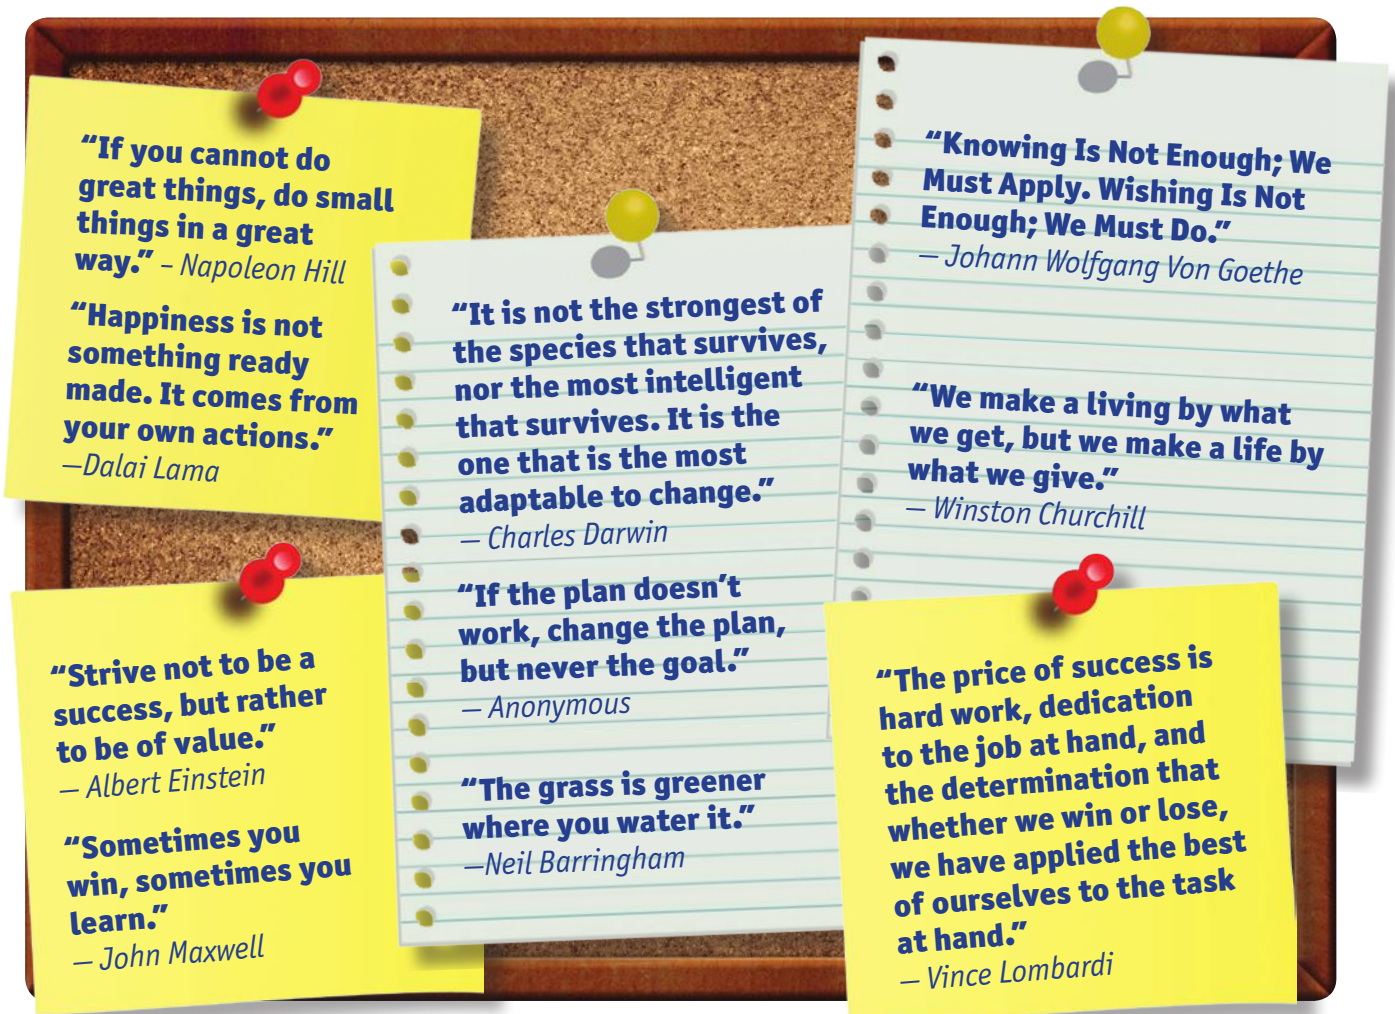 “If you cannot do
great things, do small
things in a great
way.” – Napoleon Hill
“Happiness is not
something ready
made. It comes from
your own actions.”
—Dalai Lama
“Strive not to be a
success, but rather
to be of value.”
— Albert Einstein
“Sometimes you
win, sometimes you
learn.”
— John Maxwell
“It is not the strongest of
the species that survives,
nor the most intelligent
that survives. It is the
one that is the most
adaptable to change.”
— Charles Darwin
“If the plan doesn’t
work, change the plan,
but never the goal.”
— Anonymous
“The grass is greener
where you water it.”
—Neil Barringham
“Knowing Is Not Enough; We
Must Apply. Wishing Is Not
Enough; We Must Do.”
— Johann Wolfgang Von Goethe
“We make a living by what
we get, but we make a life by
what we give.”
— Winston Churchill
“The price of success is
hard work, dedication
to the job at hand, and
the determination that
whether we win or lose,
we have applied the best
of ourselves to the task
at hand.”
— Vince Lombardi